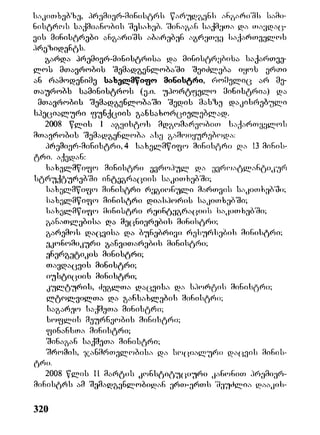 საკითხებზე. პრემიერ-მინისტრს წარუდგენს ანგარიშს სამი-
ნისტროს საქმიანობის შესახებ. შინაგან საქმეთა და თავდაც-
ვის მინისტრები ანგარიშს აბარებენ აგრეთვე საქართველოს
პრეზიდენტს.
გარდა პრემიერ-მინისტრისა და მინისტრებისა საქართვე-
ლოს მთავრობის შემადგენლობაში შეიძლება იყოს ერთი
ან რამოდენიმე სახელმწიფო მინისტრი, რომელიც არ მე-
თაურობს სამინისტროს (ე.ი. უპორტფელო მინისტრია) და
მთავრობის შემადგენლობაში შედის მასზე დაკისრებული
სპეციალური ფუნქციის განსახორციელებლად.
2008 წლის 1 აგვისტოს მდგომარეობით საქართველოს
მთავრობის შემადგენლობა ასე გამოიყურებოდა:
პრემიერ-მინისტრი,4 სახელმწიფო მინისტრი და 13 მინის-
ტრი. აქედან:
სახელმწიფო მინისტრი ევროპულ და ევროატლანტიკურ
სტრუქტურებში ინტეგრაციის საკითხებში;
სახელმწიფო მინისტრი რეგიონული მართვის საკითხებში;
სახელმწიფო მინისტრი დიასპორის საკითხებში;
სახელმწიფო მინისტრი რეინტეგრაციის საკითხებში;
განათლებისა და მეცნიერების მინისტრი;
გარემოს დაცვისა და ბუნებრივი რესურსების მინისტრი;
ეკონომიკური განვითარების მინისტრი;
ენერგეტიკის მინისტრი;
თავდაცვის მინისტრი;
იუსტიციის მინისტრი;
კულტურის, ძეგლთა დაცვისა და სპორტის მინისტრი;
ლტოლვილთა და განსახლების მინისტრი;
საგარეო საქმეთა მინისტრი;
სოფლის მეურნეობის მინისტრი;
ფინანსთა მინისტრი;
შინაგან საქმეთა მინისტრი;
შრომის, ჯანმრთელობისა და სოციალური დაცვის მინის-
ტრი.
2008 წლის 11 მარტის კონსტიტუციური კანონით პრემიერ-
მინისტრს ამ შემადგენლობიდან ერთ-ერთს შეუძლია დააკის-
320